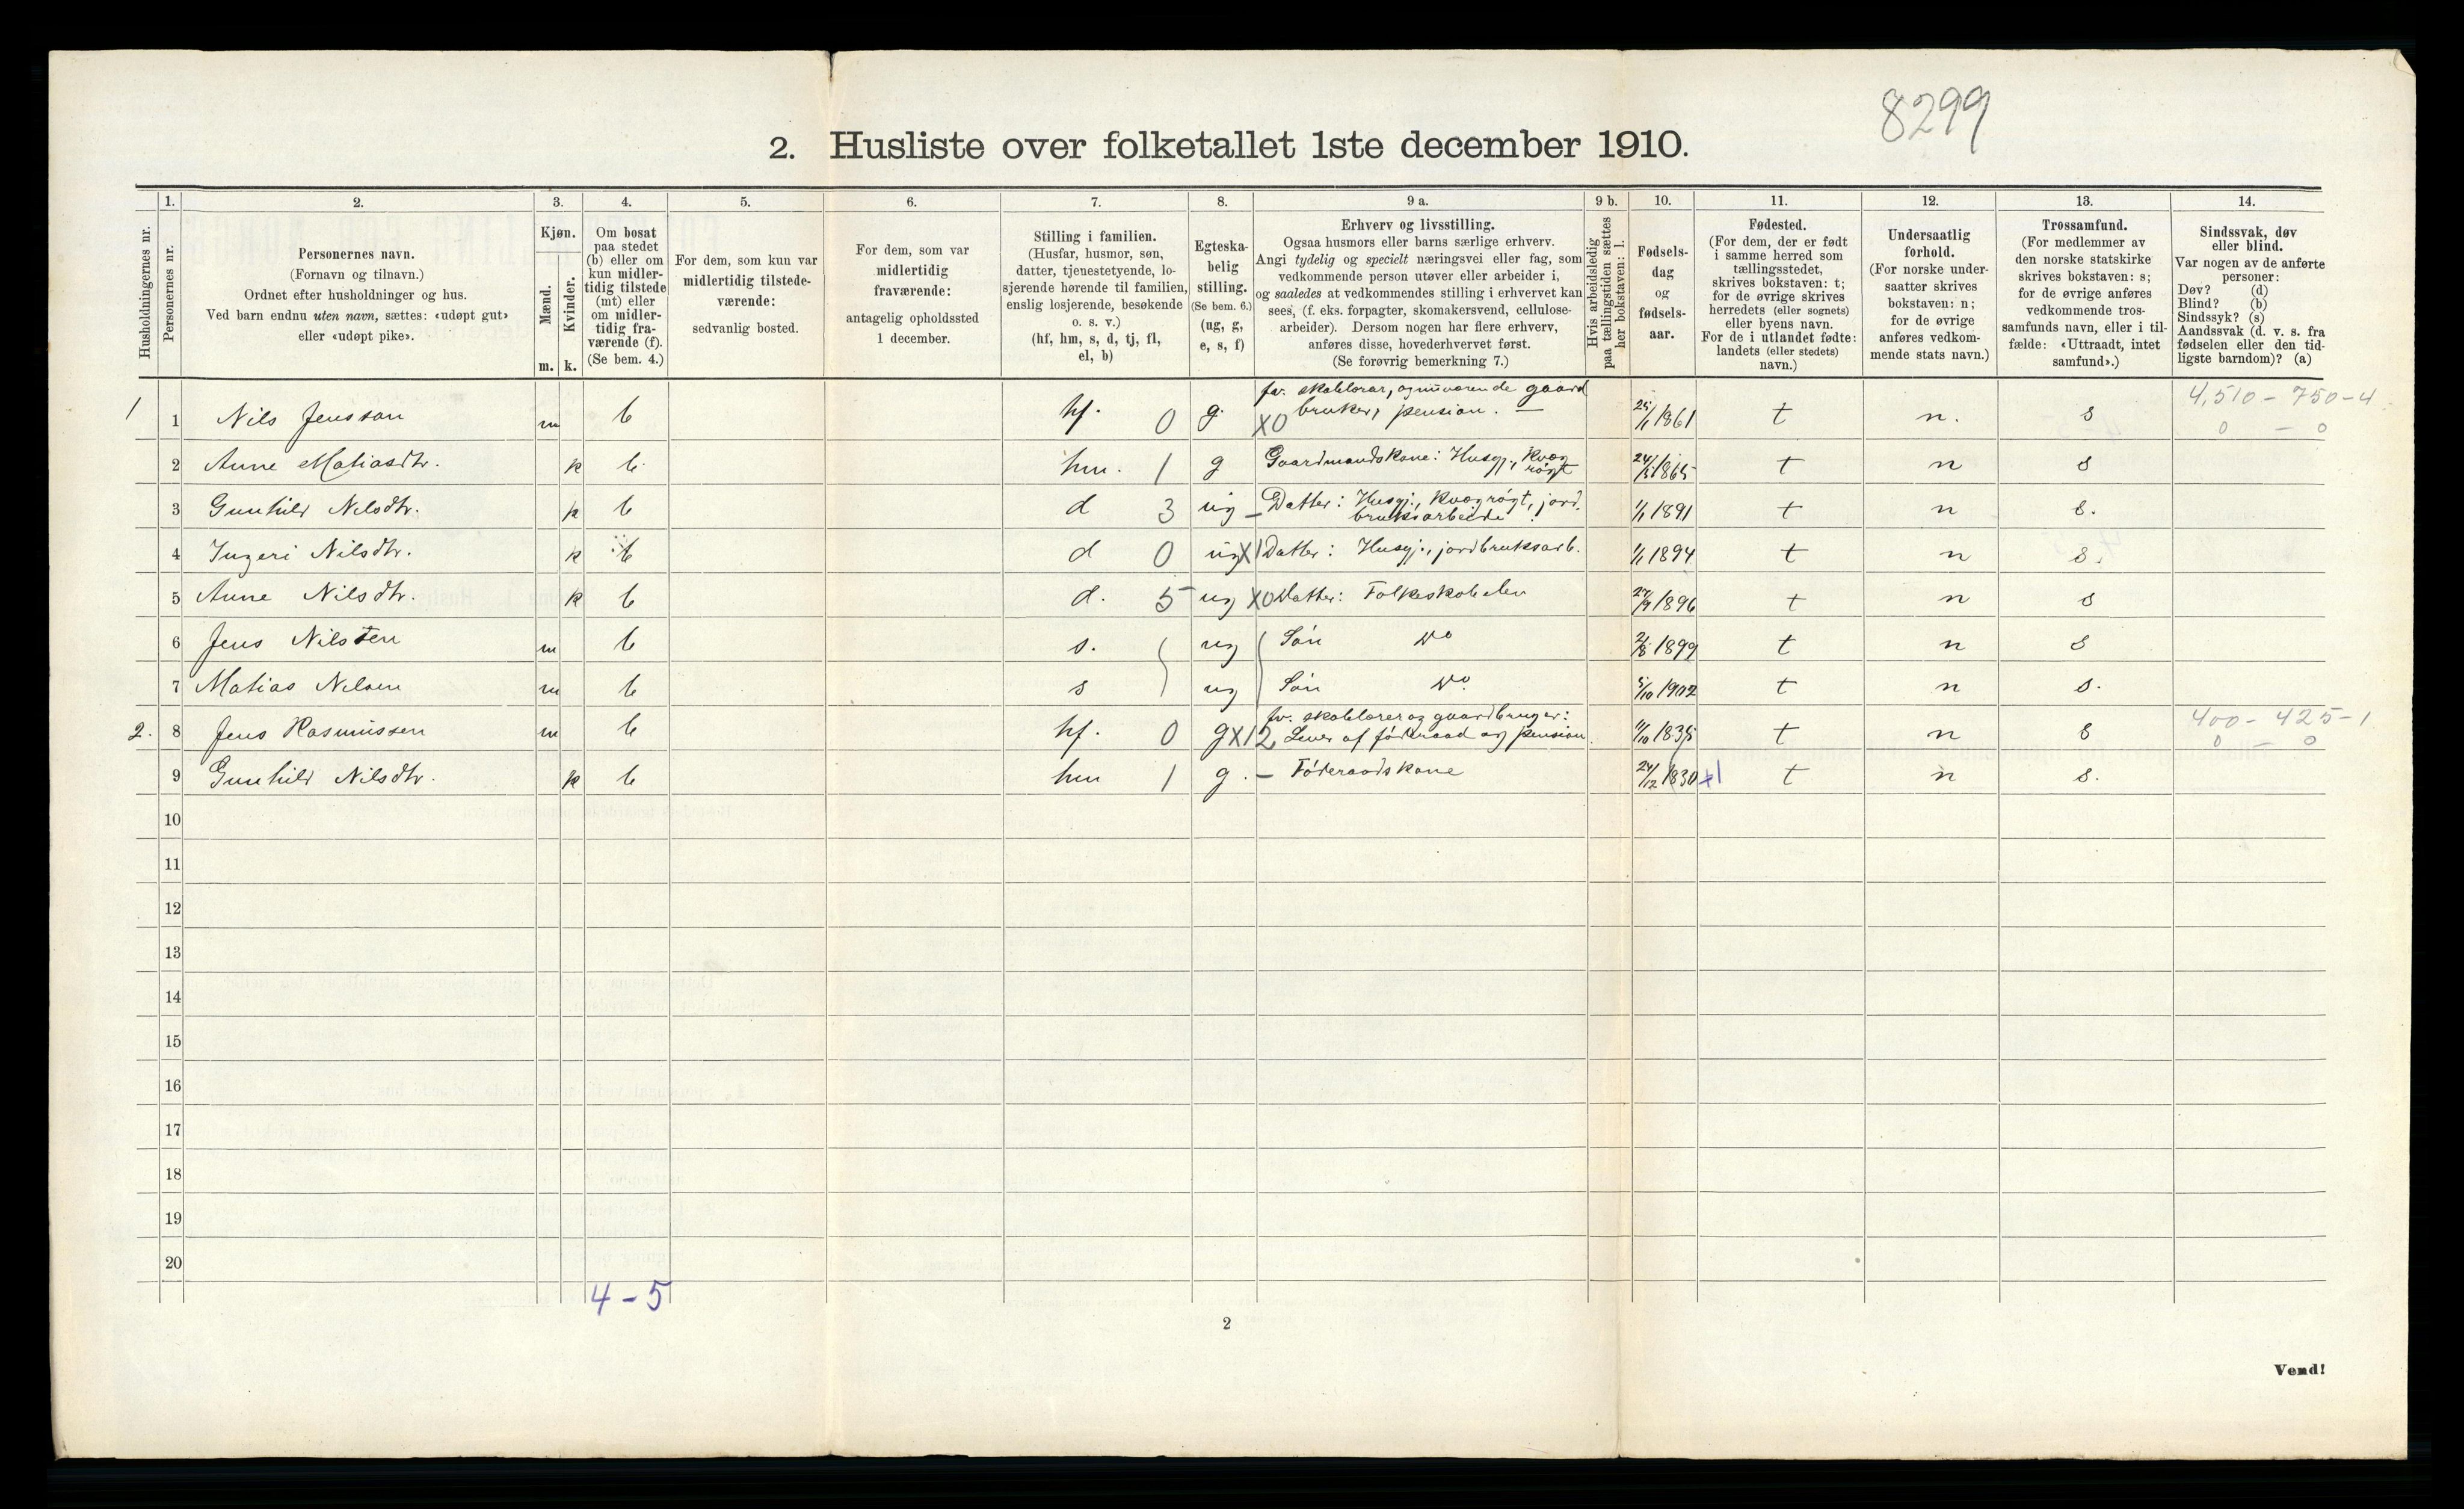 8299
2. Husliste over folketallet 1ste december 1910.
Husholdningernes nr.
1.
Personernes nr.
2.
Personernes navn.
(Fornavn og tilnavn.)
Ordnet efter husholdninger og hus.
Ved barn endnu uten navn, sættes: «udøpt gut»
eller «udøpt pike».
3.
Kjøn.
Mænd.
Kvinder.
m. k.
4.
Om bosat
paa stedet
(b) eller om
kun midler-
tidig tilstede
(mt) eller
om midler-
tidig fra-
værende (f).
(Se bem. 4.)
5.
For dem, som kun var
midlertidig tilstede-
værende:
sedvanlig bosted.
6.
For dem, som var
midlertidig
fraværende:
antagelig opholdssted
1 december.
7.
Stilling i familien.
(Husfar, husmor, søn,
datter, tjenestetyende, lo-
sjerende hørende til familien,
enslig losjerende, besøkende
o. s. v.)
(hf, hm, s, d, tj, fl,
el, b)
8.
Egteska-
belig
stilling.
(Se bem. 6.)
(ug, g,
e, s, f)
9 a.
Erhverv og livsstilling.
Ogsaa husmors eller barns særlige erhverv.
Angi tydelig og specielt næringsvei eller fag, som
vedkommende person utøver eller arbeider i,
og saaledes at vedkommendes stilling i erhvervet kan
sees, (f. eks. forpagter, skomakersvend, cellulose-
arbeider). Dersom nogen har flere erhverv,
anføres disse, hovederhvervet først.
(Se forøvrig bemerkning 7.)
9 b.
Hvis arbeidsledig
paa tællingstiden sættes
her bokstaven: l.
10.
Fødsels-
dag
og
fødsels-
aar.
11.
Fødested.
(For dem, der er født
i samme herred som
tællingsstedet,
skrives bokstaven: t;
for de øvrige skrives
herredets (eller sognets)
eller byens navn.
For de i utlandet fødte:
landets (eller stedets)
navn.)
12.
Undersaatlig
forhold.
(For norske under-
saatter skrives
bokstaven: n;
for de øvrige
anføres vedkom-
mende stats navn.)
13.
Trossamfund.
(For medlemmer av
den norske statskirke
skrives bokstaven: s;
for de øvrige anføres
vedkommende tros-
samfunds navn, eller i til-
fælde: «Uttraadt, intet
samfund».)
14.
Sindssvak, døv
eller blind.
Var nogen av de anførte
personer:
Døv? (d)
Blind? (b)
Sindssyk? (s)
Aandssvak (d. v. s. fra
fødselen eller den tid-
ligste barndom)? (a)
fv. skolelærar, og nuværende gaard 4,510 - 750-4
1 1 Nils Jensson m b hf. 0 g. X0 bruker, pension. — 25/1 1861 t n. s 0 - 0
2 Anne Matiasdtr. k b hm. 1 g Gaardmandskone: Husgj., kvæg
røgt 1865 t n s
3 Gunhild Nilsdtr. k b d 3 ug - Datter: Husgj., kvægrøgt, jord.
bruksarbeide 1/1 1891 t n s.
4 Ingeri Nilsdtr. k b d 0 ug X1 Datter: Husgj., jordbruksarb. 1/1 1894 t n s.
5 Anne Nilsdtr. k b d. 5 ug X0 Datter: Folkeskoleelev 27/9 1896 t n s
6 Jens Nilssen m b s. ug Søn Do 1899 t n s
7 Matias Nilsen m b s ug Søn Do. 5/10 1902 t n s.
fv. skolelærer og gaardbruger: 400 - 425-1
2. 8 Jens Rasmussen m b hf. 0 g X12 Lever af föderaad og pension. 11/10 1835 t n s 0 - 0
9 Gunhild Nilsdtr. k b hm 1 g. - Föderaadskone 24/12 1830 x1 t n s.
10
11
12
13
14
15
16
17
18
19
20
4-5
2
Vend!